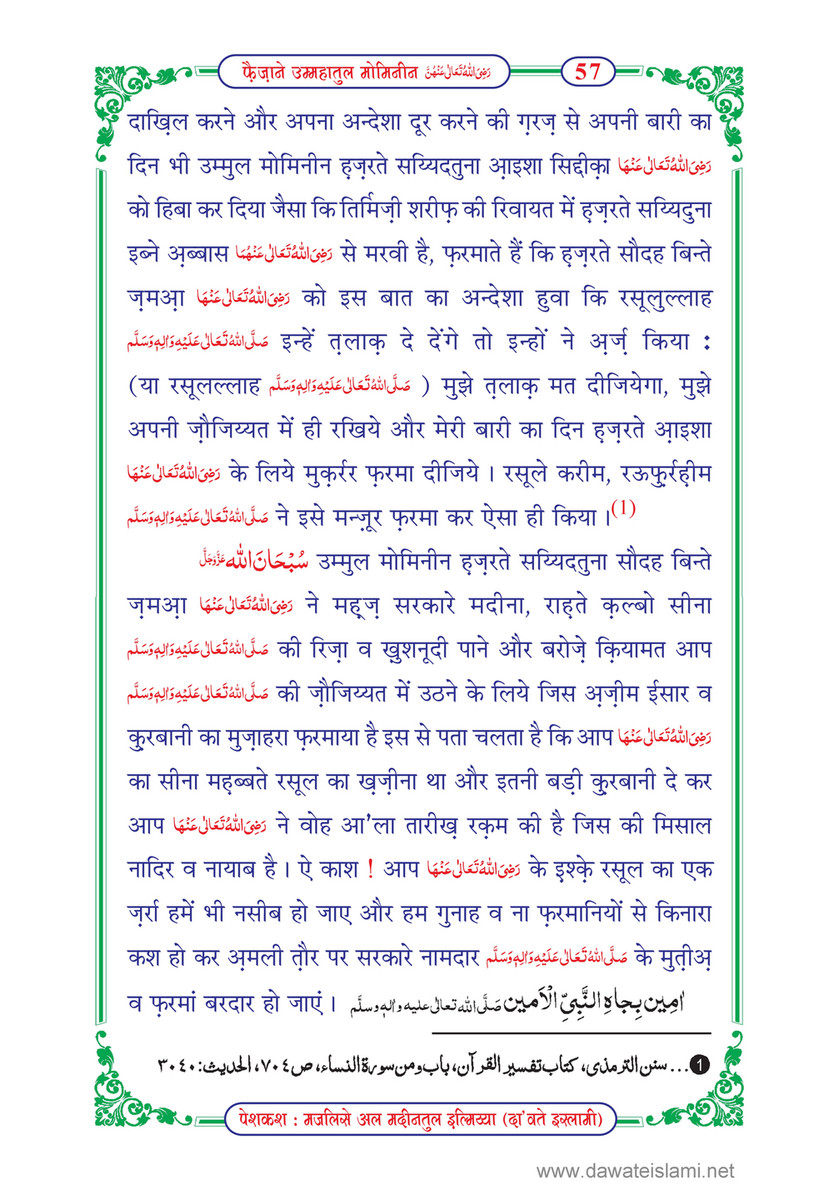 फ़ैज़ाने उम्महातुल मोमिनीन رَضِیَ اللہُ تَعَالٰی عَنْہُنَّ 57
दाख़िल करने और अपना अन्देशा दूर करने की ग़रज़ से अपनी बारी का
दिन भी उम्मुल मोमिनीन ह़ज़रते सय्यिदतुना आ़इशा सिद्दीक़ा رَضِیَ اللہُ تَعَالٰی عَنْہَا
को हिबा कर दिया जैसा कि तिर्मिज़ी शरीफ़ की रिवायत में ह़ज़रते सय्यिदुना
इब्ने अ़ब्बास رَضِیَ اللہُ تَعَالٰی عَنْہُمَا से मरवी है, फ़रमाते हैं कि ह़ज़रते सौदह बिन्ते
ज़मआ़ رَضِیَ اللہُ تَعَالٰی عَنْہَا को इस बात का अन्देशा हुवा कि रसूलुल्लाह
صَلَّی اللہُ تَعَالٰی عَلَیْہِ وَاٰلِہٖ وَسَلَّم इन्हें त़लाक़ दे देंगे तो इन्हों ने अ़र्ज़ किया :
(या रसूलल्लाह صَلَّی اللہُ تَعَالٰی عَلَیْہِ وَاٰلِہٖ وَسَلَّم ) मुझे त़लाक़ मत दीजियेगा, मुझे
अपनी ज़ौजिय्यत में ही रखिये और मेरी बारी का दिन ह़ज़रते आ़इशा
رَضِیَ اللہُ تَعَالٰی عَنْہَا के लिये मुक़र्रर फ़रमा दीजिये । रसूले करीम, रऊफ़ुर्रह़ीम
صَلَّی اللہُ تَعَالٰی عَلَیْہِ وَاٰلِہٖ وَسَلَّم ने इसे मन्ज़ूर फ़रमा कर ऐसा ही किया ।(1)
سُبْحَانَ اللّٰہ عَزَّوَجَلَّ उम्मुल मोमिनीन ह़ज़रते सय्यिदतुना सौदह बिन्ते
ज़मआ़ رَضِیَ اللہُ تَعَالٰی عَنْہَا ने मह़्ज़ सरकारे मदीना, राह़ते क़ल्बो सीना
صَلَّی اللہُ تَعَالٰی عَلَیْہِ وَاٰلِہٖ وَسَلَّم की रिज़ा व ख़ुशनूदी पाने और बरोज़े क़ियामत आप
صَلَّی اللہُ تَعَالٰی عَلَیْہِ وَاٰلِہٖ وَسَلَّم की ज़ौजिय्यत में उठने के लिये जिस अ़ज़ीम ईसार व
क़ुरबानी का मुज़ाहरा फ़रमाया है इस से पता चलता है कि आप رَضِیَ اللہُ تَعَالٰی عَنْہَا
का सीना मह़ब्बते रसूल का ख़ज़ीना था और इतनी बड़ी क़ुरबानी दे कर
आप رَضِیَ اللہُ تَعَالٰی عَنْہَا ने वोह आ'ला तारीख़ रक़म की है जिस की मिसाल
नादिर व नायाब है । ऐ काश ! आप رَضِیَ اللہُ تَعَالٰی عَنْہَا के इ़श्क़े रसूल का एक
ज़र्रा हमें भी नसीब हो जाए और हम गुनाह व ना फ़रमानियों से किनारा
कश हो कर अ़मली त़ौर पर सरकारे नामदार صَلَّی اللہُ تَعَالٰی عَلَیْہِ وَاٰلِہٖ وَسَلَّم के मुत़ीअ़
व फ़रमां बरदार हो जाएं । اٰمِیْن بِجَاہِ النَّبِیِّ الْاَمِیْن صَلَّی اللہُ تعالٰی علیہ واٰلہٖ وسلَّم
❶... سنن الترمذی، کتاب تفسیر القرآن، باب ومن سورۃ النساء، ص۷۰۴، الحدیث:۳۰۴۰
पेशकश : मजलिसे अल मदीनतुल इ़ल्मिय्या (दा'वते इस्लामी)
www.dawateislami.net